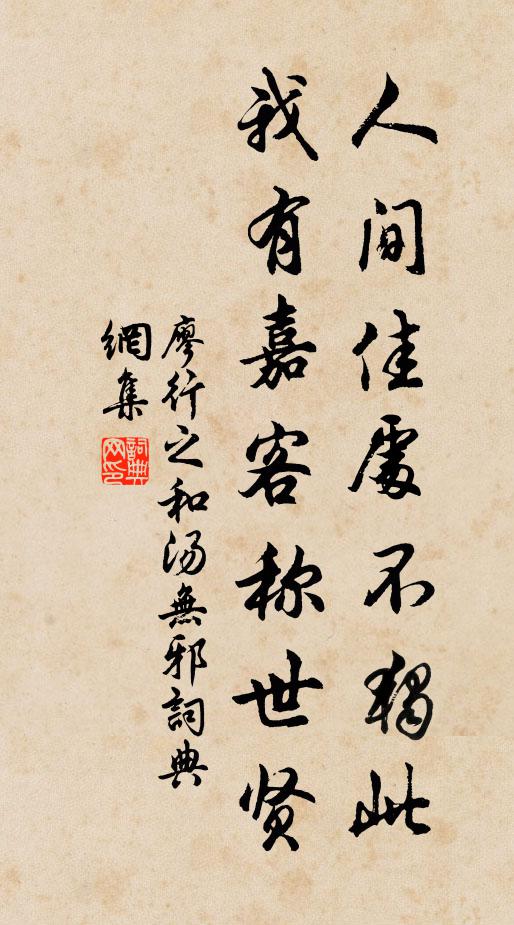 人间佳處不獨此
我有嘉客称世贤
廖行之和汤無邪詞典
網集
詞典
网印